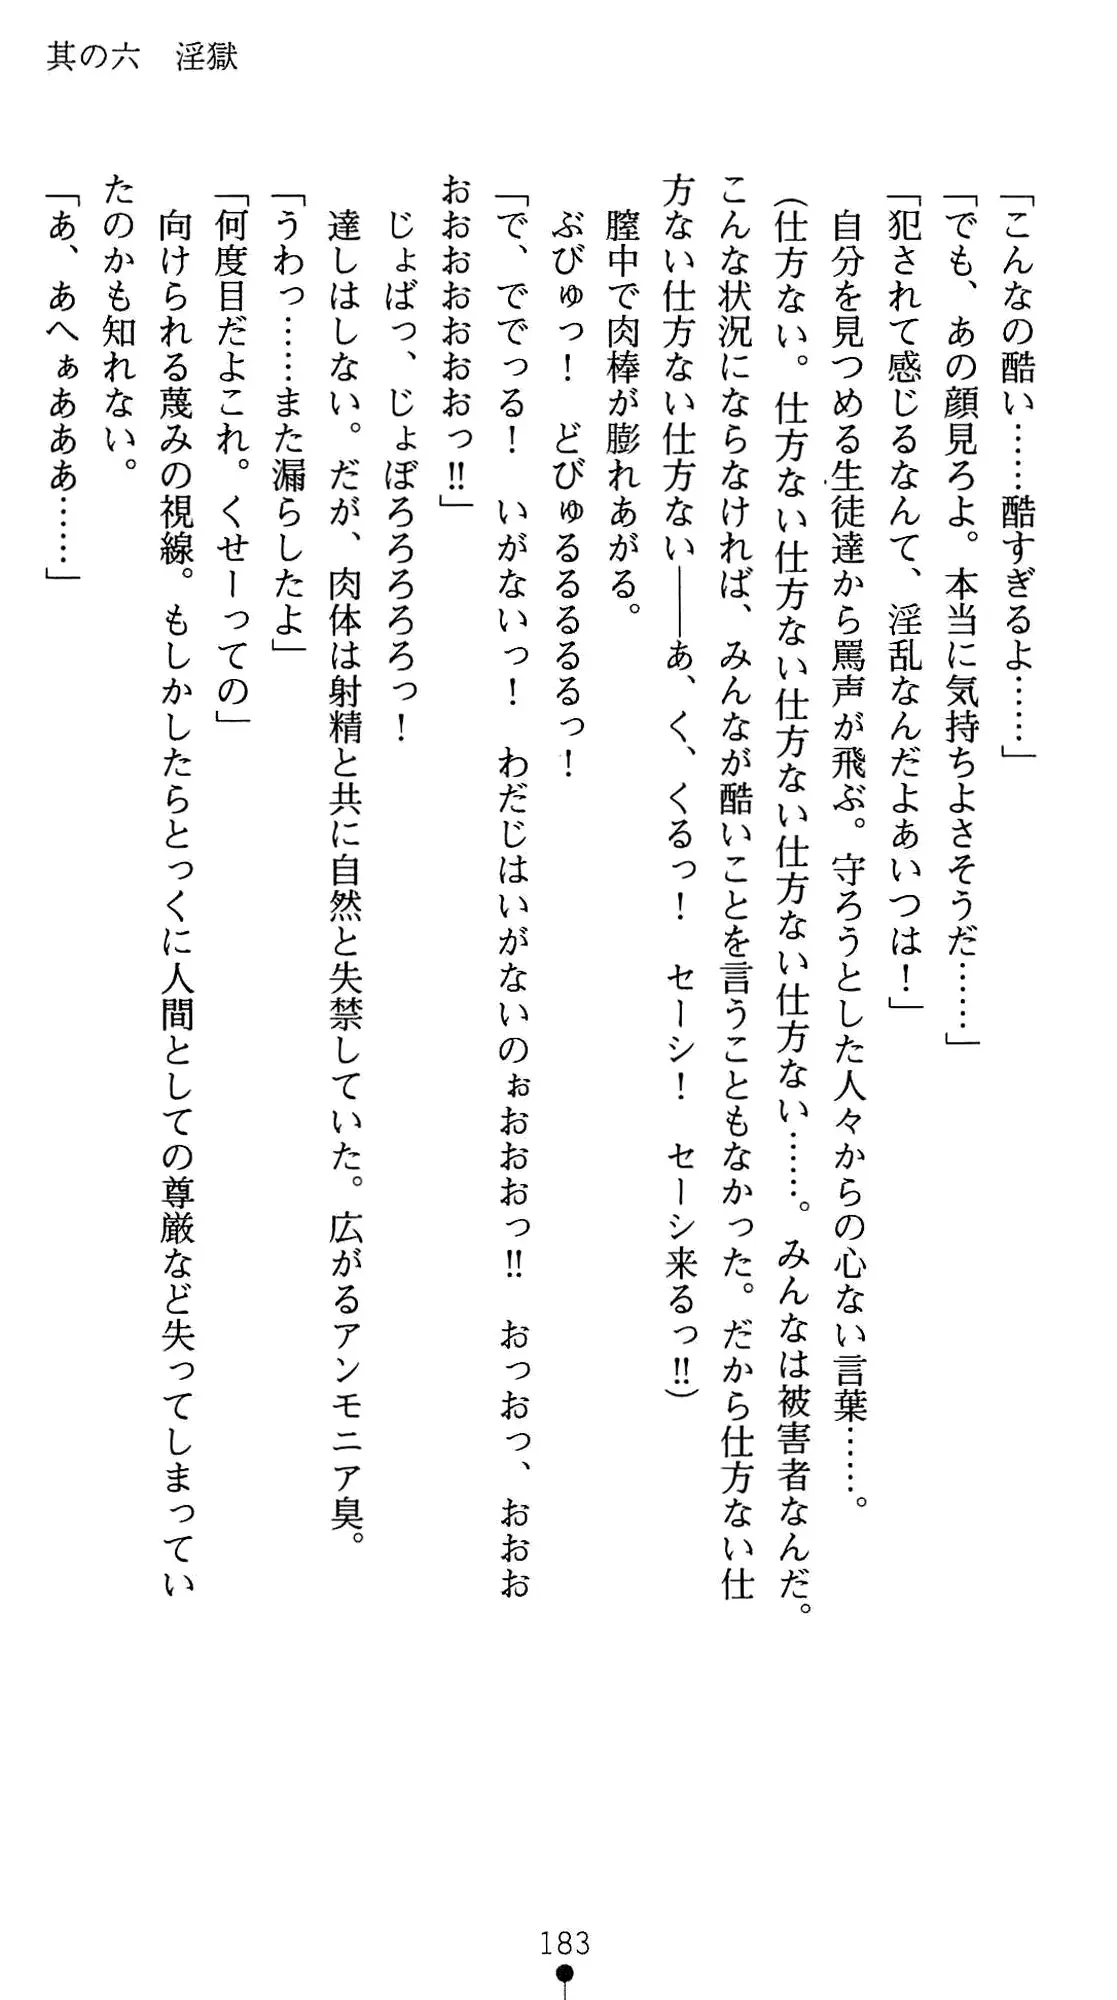 其の六　淫獄
「こんなの酷い……酷すぎるよ……」
「でも、あの顔見ろよ。本当に気持ちよさそうだ……」
「犯されて感じるなんて、淫乱なんだよあいつは！」
自分を見つめる生徒達から罵声が飛ぶ。守ろうとした人々からの心ない言葉……。
(仕方ない。仕方ない仕方ない仕方ない仕方ない仕方ない……。みんなは被害者なんだ。
こんな状況にならなければ、みんなが酷いことを言うこともなかった。だから仕方ない仕
方ない仕方ない仕方ない――あ、く、くるっ！　セーシ！　セーシ来るっ!!)
膣中で肉棒が膨れあがる。
ぶびゅっ！　どびゅるるるるるっ！
「で、ででっる！　いがないっ！　わだじはいがないのぉおおおっ!!　おっおっ、おおお
おおおおおおおっ!!」
じょばっ、じょぼろろろろろっ！
達しはしない。だが、肉体は射精と共に自然と失禁していた。広がるアンモニア臭。
「うわっ……また漏らしたよ」
「何度目だよこれ。くせーっての」
向けられる蔑みの視線。もしかしたらとっくに人間としての尊厳など失ってしまってい
たのかも知れない。
「あ、あへぁあああ……」
183